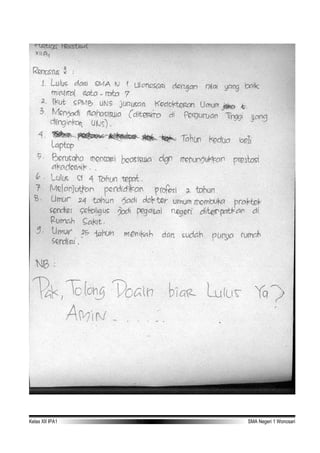 XII A1
Rencana :
1. Lulus dari SMA N 1 Wonosari dengan nilai yang baik
minimal rata - rata 7
2. Ikut SPMB UNS jurusan Kedokteran Umum
3. Menjadi mahasiswa (diterima di Perguruan Tinggi yang
diinginkan UNS).
4. Tahun kedua beli
Laptop
5. Berusaha mencari beasiswa dgn menunjukkan prestasi
akademik..
6. Lulus S1 4 Tahun tepat.
7. Melanjutkan pendidikan profesi 2 tahun
8. Umur 24 tahun jadi dokter umum membuka praktek
sendiri sekaligus jadi pegawai negeri ditempatkan di
Rumah Sakit.
9. Umur 25 tahun menikah dan sudah punya rumah
sendiri.
NB :
Pak, Tolong Doain biar Lulus Ya?
Amin . . . . .
Kelas XII IPA1 SMA Negeri 1 Wonosari